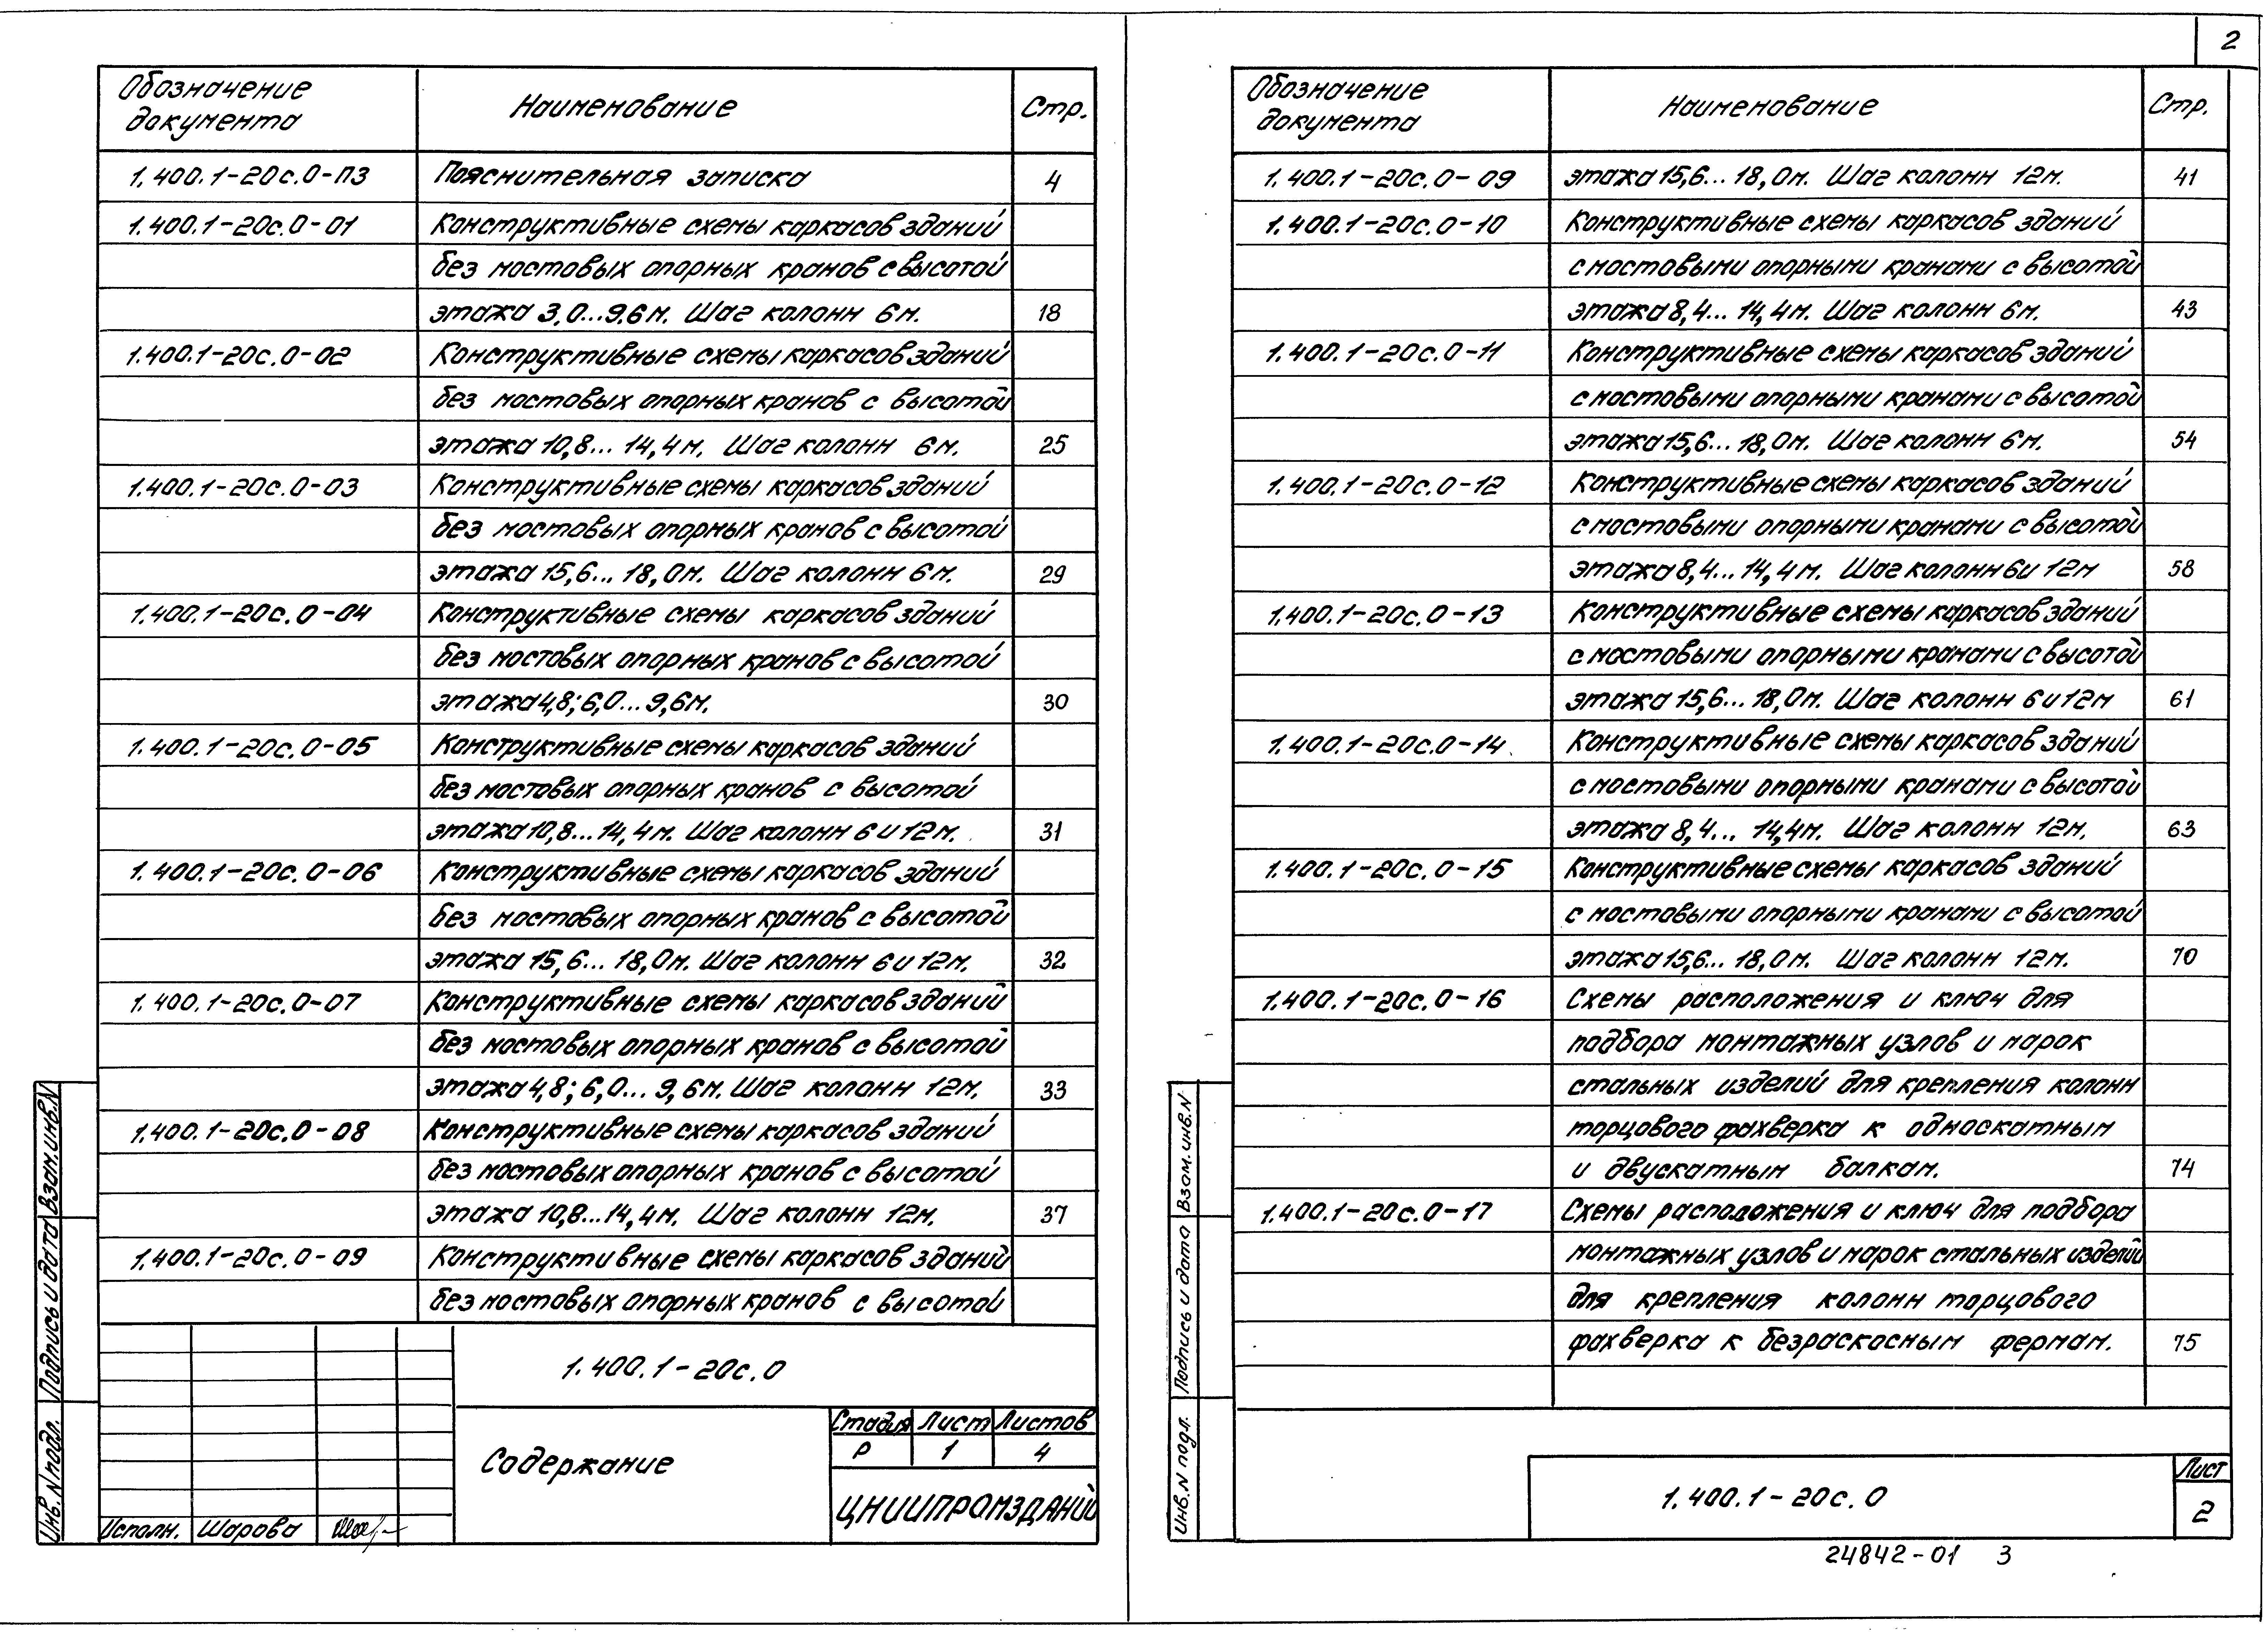 2
Обозначение документа Наименование Стр.
1.400.1-20с.0-ПЗ Пояснительная записка 4
1.400.1-20с.0-01 Конструктивные схемы каркасов зданий
без мостовых опорных кранов с высотой
этажа 3,0...9,6м. Шаг колонн 6м. 18
1.400.1-20с.0-02 Конструктивные схемы каркасов зданий
без мостовых опорных кранов с высотой
этажа 10,8...14,4м. Шаг колонн 6м. 25
1.400.1-20с.0-03 Конструктивные схемы каркасов зданий
без мостовых опорных кранов с высотой
этажа 15,6...18,0м. Шаг колонн 6м. 29
1.400.1-20с.0-04 Конструктивные схемы каркасов зданий
без мостовых опорных кранов с высотой
этажа 4,8; 6,0...9,6м. 30
1.400.1-20с.0-05 Конструктивные схемы каркасов зданий
без мостовых опорных кранов с высотой
этажа 10,8...14,4м. Шаг колонн 6 и 12м. 31
1.400.1-20с.0-06 Конструктивные схемы каркасов зданий
без мостовых опорных кранов с высотой
этажа 15,6...18,0м. Шаг колонн 6 и 12м. 32
1.400.1-20с.0-07 Конструктивные схемы каркасов зданий
без мостовых опорных кранов с высотой
этажа 4,8; 6,0...9,6м. Шаг колонн 12м. 33
1.400.1-20с.0-08 Конструктивные схемы каркасов зданий
без мостовых опорных кранов с высотой
этажа 10,8...14,4м. Шаг колонн 12м. 37
1.400.1-20с.0-09 Конструктивные схемы каркасов зданий
без мостовых опорных кранов с высотой
1.400.1-20с.0
Содержание
Стадия Лист Листов
Р 1 4
ЦНИИПРОМЗДАНИЙ
Исполн. Шарова
Инв. N подл. Подпись и дата Взам инв. N
Обозначение документа Наименование Стр.
1.400.1-20с.0-09 этажа 15,6...18,0м. Шаг колонн 12м. 41
1.400.1-20с.0-10 Конструктивные схемы каркасов зданий
с мостовыми опорными кранами с высотой
этажа 8,4...14,4м. Шаг колонн 6м. 43
1.400.1-20с.0-11 Конструктивные схемы каркасов зданий
с мостовыми опорными кранами с высотой
этажа 15,6...18,0м. Шаг колонн 6м. 54
1.400.1-20с.0-12 Конструктивные схемы каркасов зданий
с мостовыми опорными кранами с высотой
этажа 8,4...14,4м. Шаг колонн 6 и 12м 58
1.400.1-20с.0-13 Конструктивные схемы каркасов зданий
с мостовыми опорными кранами с высотой
этажа 15,6...18,0м. Шаг колонн 6 и 12м 61
1.400.1-20с.0-14 Конструктивные схемы каркасов зданий
с мостовыми опорными кранами с высотой
этажа 8,4...14,4м. Шаг колонн 12м. 63
1.400.1-20с.0-15 Конструктивные схемы каркасов зданий
с мостовыми опорными кранами с высотой
этажа 15,6...18,0м. Шаг колонн 12м. 70
1.400.1-20с.0-16 Схемы расположения и ключ для
подбора монтажных узлов и марок
стальных изделий для крепления колонн
торцового фахверка к односкатным
и двускатным балкам. 74
1.400.1-20с.0-17 Схемы расположения и ключ для подбора
монтажных узлов и марок стальных изделий
для крепления колонн торцового
фахверка к безраскосным фермам. 75
1.400.1-20с.0
Лист
2
Инв. N подл. Подпись и дата Взам. инв. N
24842-01 3